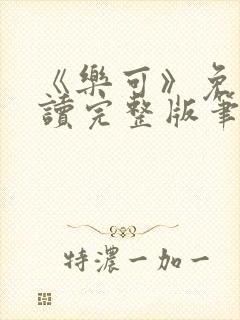 《樂可》免
讀完整版筆
特濃一加一